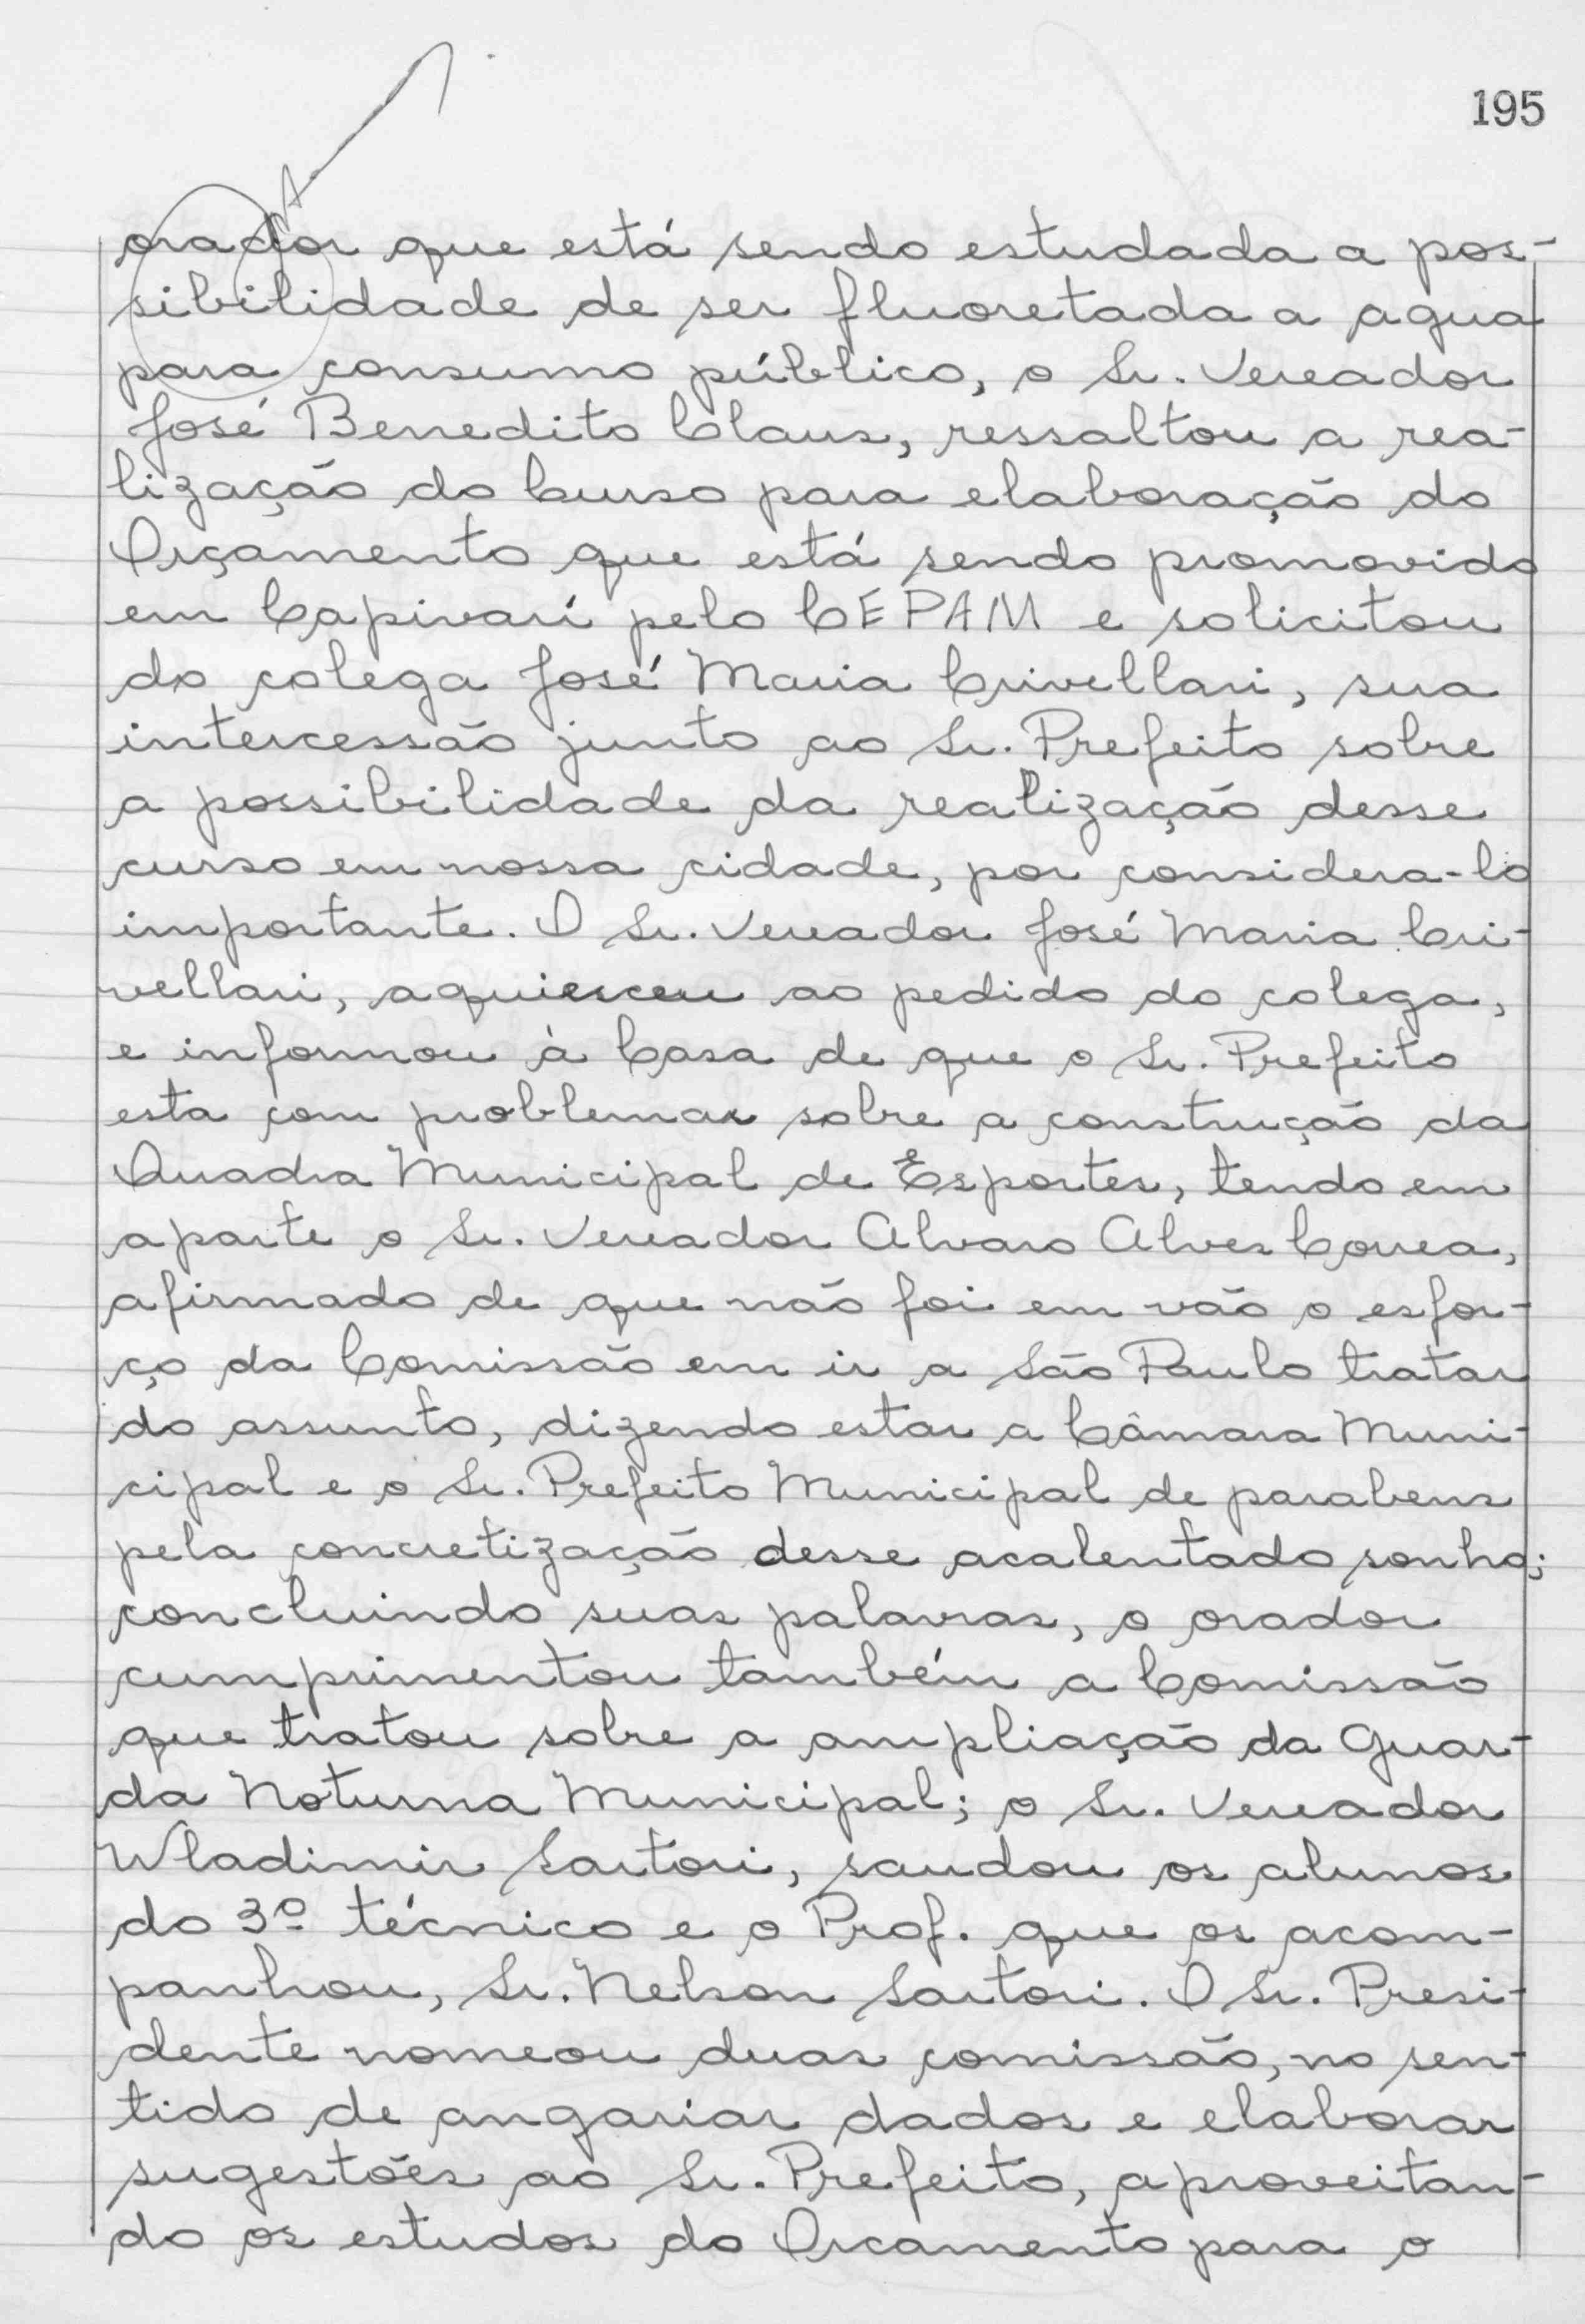 195
orador que está sendo estudada a pos-
sibilidade de ser fluoretada a agua
para consumo público, o Sr. Vereador
José Benedito Claus, ressaltou a rea-
lização do Curso para elaboração do
Orçamento que está sendo promovido
em Capivarí pelo CEPAM e solicitou
do colega José Maria Crivellari, sua
intercessão junto ao Sr. Prefeito sobre
a possibilidade da realização desse
curso em nossa cidade, por considera-lo
importante. O Sr. Vereador José Maria Cri-
vellari, aquiesceu ao pedido do colega,
e informou à Casa de que o Sr. Prefeito
esta com problemas sobre a construção da
Quadra Municipal de Esportes, tendo em
aparte o Sr. Vereador Alvaro Alves Correa,
afirmado de que não foi em vão o esfor-
ço da Comissão em ir a São Paulo tratar
do assunto, dizendo estar a Câmara Muni-
cipal e o Sr. Prefeito Municipal de parabens
pela concretização desse acalentado sonho;
concluindo suas palavras, o orador
cumprimentou também a Comissão
que tratou sobre a ampliação da Guar-
da Noturna Municipal; o Sr. Vereador
Wladimir Sartori, saudou os alunos
do 3º técnico e o Prof. que os acom-
panhou, Sr. Nelson Sartori. O Sr. Presi-
dente nomeou duas comissão, no sen-
tido de angariar dados e elaborar
sugestões ao Sr. Prefeito, aproveitan-
do os estudos do Orcamento para o